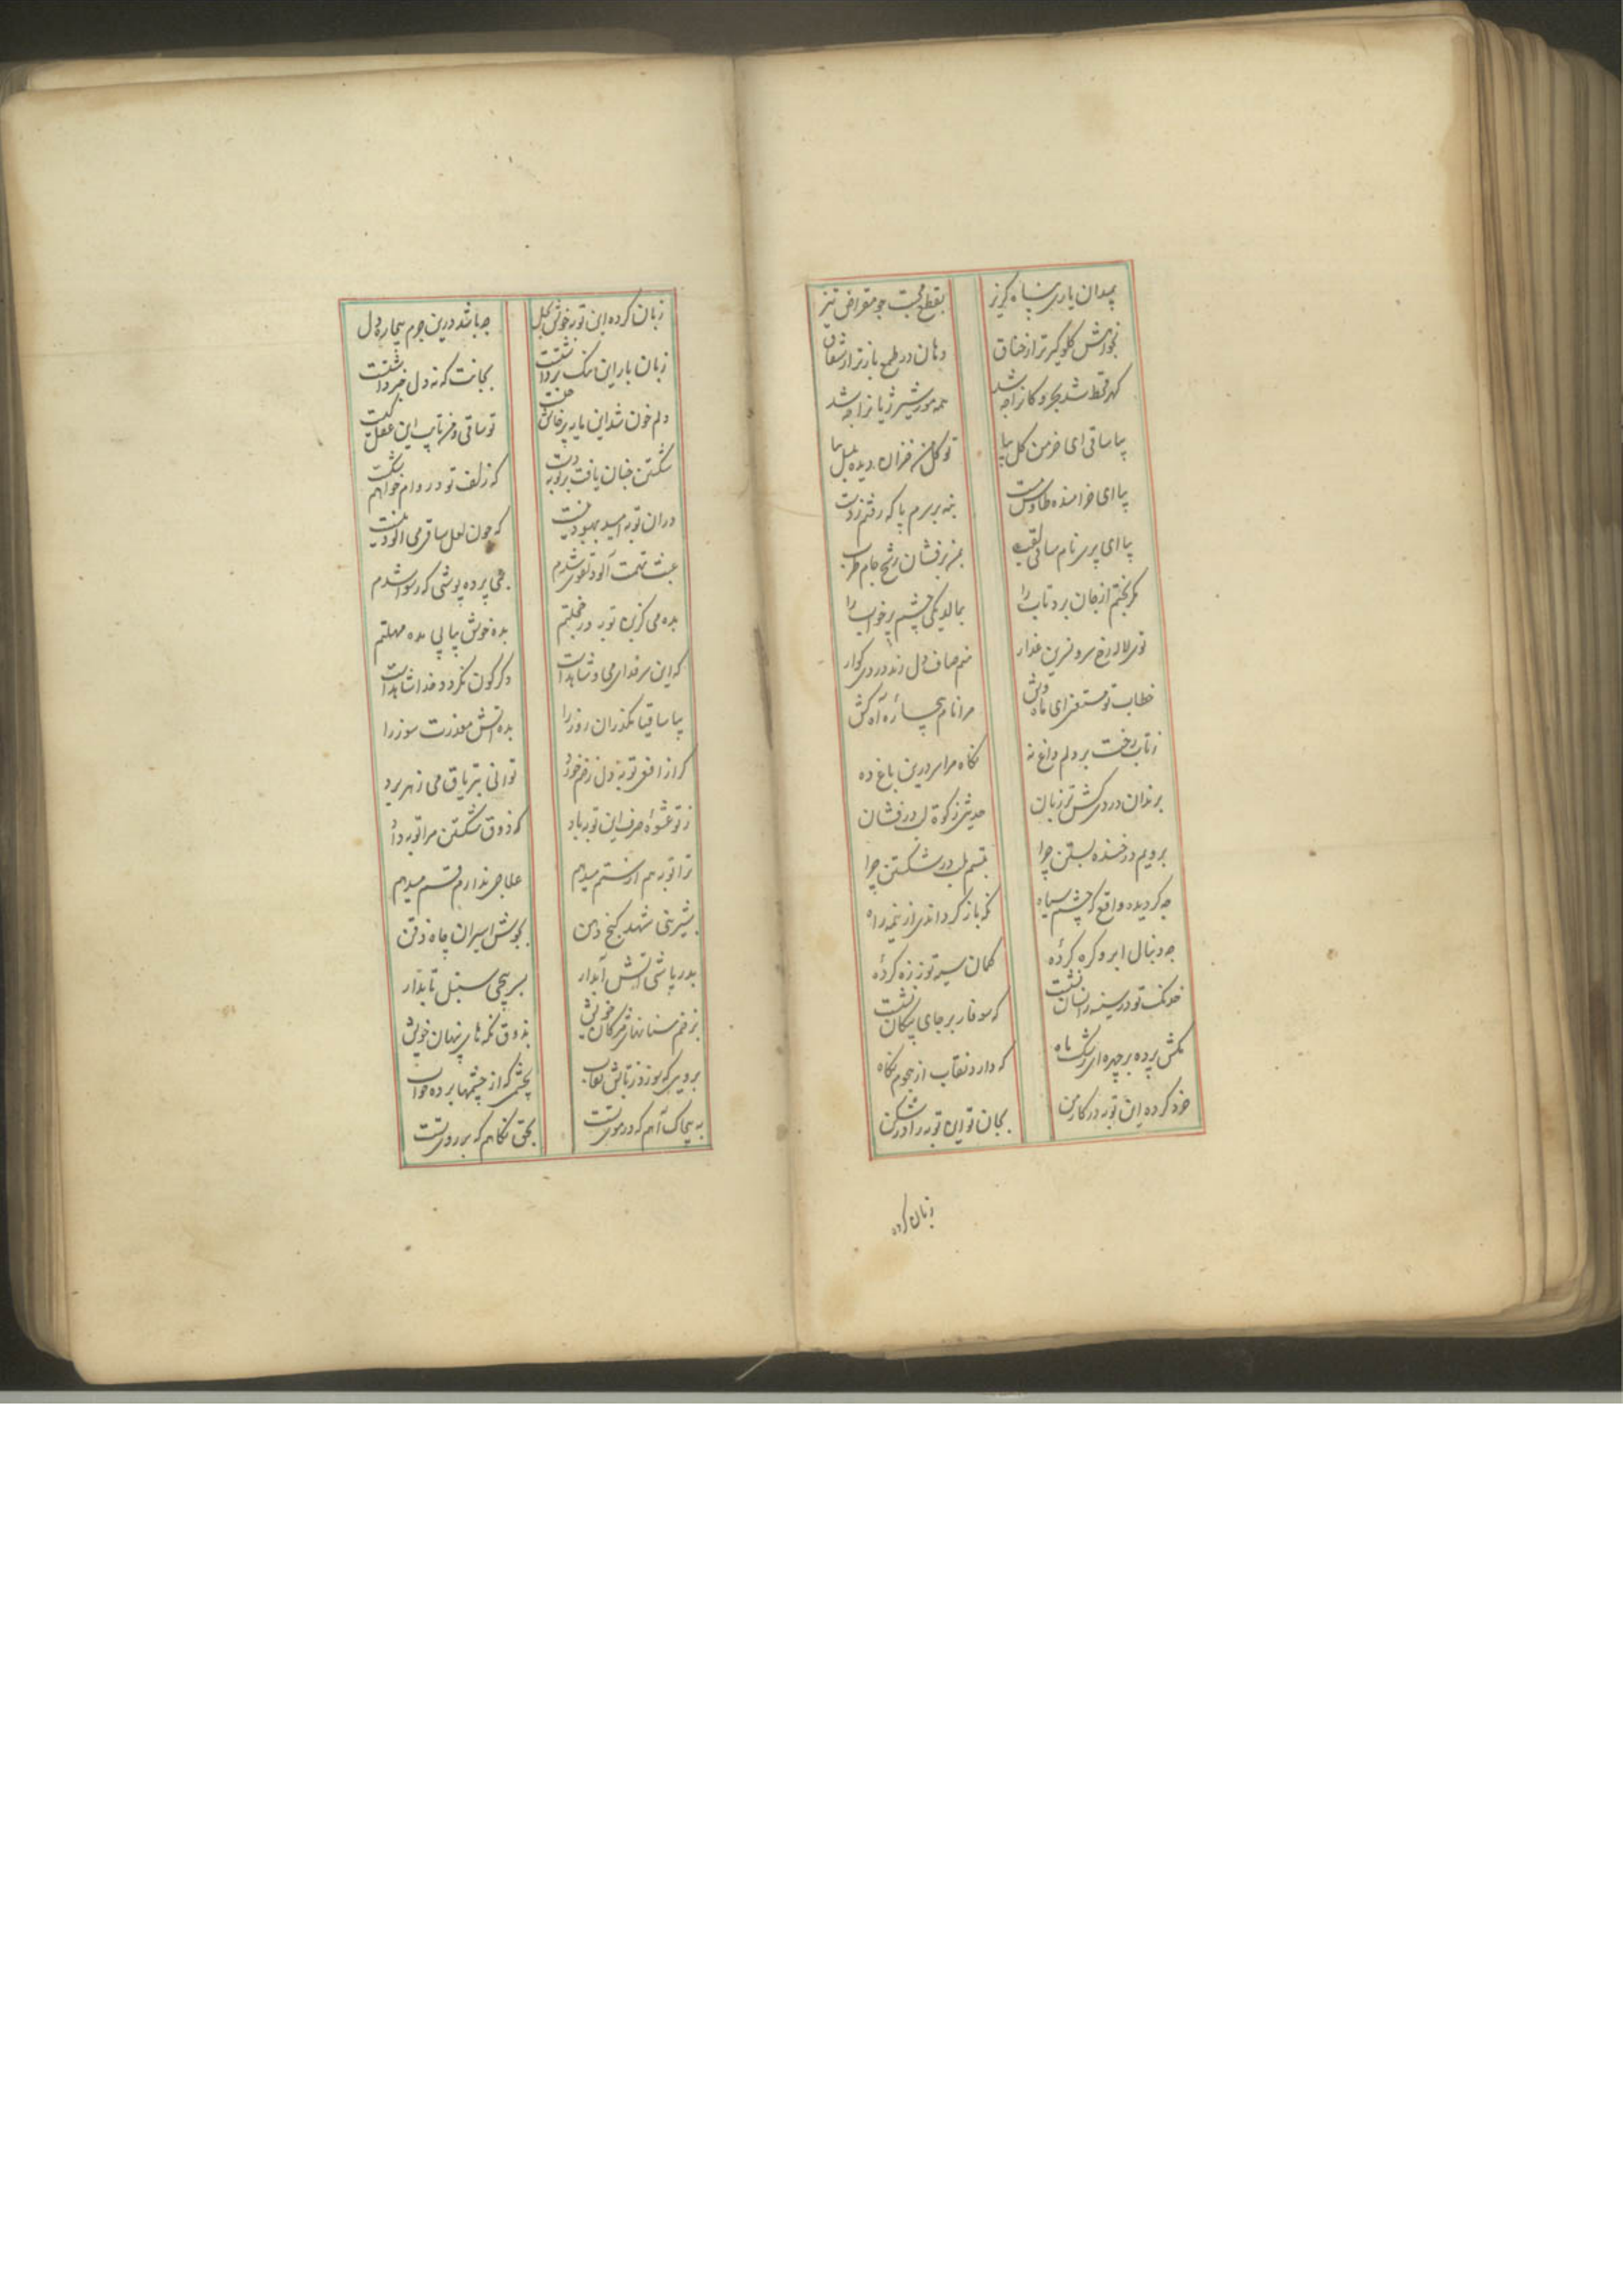 بمیدان یاری سپاه گریز بقطع محبت چو مقراض تیز
بخورش گلوگیرتر از خناق دهان در طمع بازتر از
گهر قحط شد بحر و کانرا چه شد همه مور شد شیر ژیانرا چه شد
بیا ساقی ای خرمن گل بیا تو گل من خزان دیده بلبل بیا
بیا ای خرامنده طاوس مست بنه بر سرم پا که رفتم ز دست
بیا ای پری نام ساقی لقب بمن برفشان رشح جام طرب
مگر بختم از جان برد تاب را بمالد یکی چشم پر خواب را
توی لاله رخ سرو نسرین عذار منم صاف دل رند دردی گوار
خطاب تو مستغنی ای ماه وش مرا نام بیچاره آه کش
ز تاب رخت بر دلم داغ نه نگاه مرا سر درین باغ ده
برندان دردی کش تر زبان حدیثی زکوة لب درفشان
برویم در خنده بستن چرا تبسم بلب در شکستن چرا
چه گردیده واقع که چشم سیاه نگه باز گرداندی از نیمه راه
چه دنبال ابرو گره کرده کمان ستیز تو زه کرده
خدنگ تو در سینه زانسان نشست که سوفار بر جای پیکان نشست
مکش پرده بر چهره ای رشک ماه که دارد نقاب از هجوم نگاه
خرد کرده این توبه در کار من بجان تو این توبه را در شکن
زبان کرده
زبان کرده این توبه خوش بحل چه باشد درین جرم بیچاره دل
زبان بار این ننگ برداشتست بجانت که نه دل خبر داشتست
دلم خون شد این یار پرخاش کیست تو ساقی و من تایب این عقل کیست
شکستن چنان یافت بر توبه دست که زلف تو در وام خواهم شکست
در آن توبه امید بهبود نیست که چون لعل ساقی می آلود نیست
عبث تهمت آلود تقوی شدم می پرده پوشی که رسوا شدم
بده می کزین توبه در خجلتم بده خوش پیاپی مده مهلتم
که این سر فدای می و شاهد است دگرگون نگردد خدا شاهد است
بیا ساقیا بگذران روز را بده آتش معذرت سوز را
گر از افعی توبه دل زخم خورد توانی بتریاق می زهر برد
ز تو عشوه صرف این توبه باد که ذوق شکستن مرا توبه داد
ترا توبه هم از ستم میدهم علاجی ندارم قسم میدهم
بشیرینی شهد کنج دهن بجوش اسیران چاه ذقن
بدر پاشی آتش آبدار بسر پیچی سنبل تابدار
بزخم سنانهای مژگان خویش بذوق نگه های پنهان خویش
برویی که سوزد ز تابش نقاب بچشمی که از چشمها برده خواب
به پیچاک آهم که در موی تست بحق نگاهم که بر روی تست